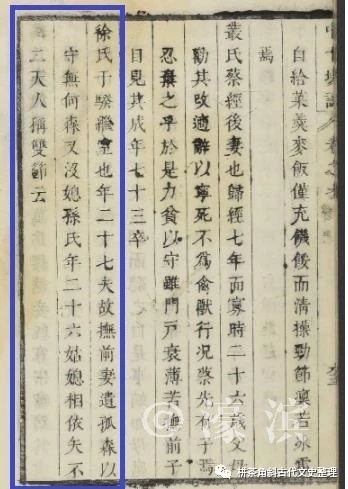 自給菜羹麥飯僅充饑餒而清操勁節凜若氷霜
焉
叢氏蔡經後妻也歸經七年而寡時二十六歲父母
勸其改適辭以寧死不為禽獸行况蔡先有子焉
忍棄之乎於是力貧以守雖門戶衰薄若無前子
目見其成年七十三卒
徐氏于騄繼室也年二十七夫故撫前妻遺孤森以
守無何森又沒媳孫氏年二十六姑媳相依矢不
二天人稱雙節云
家濱
拼茶角斜古代文史整理